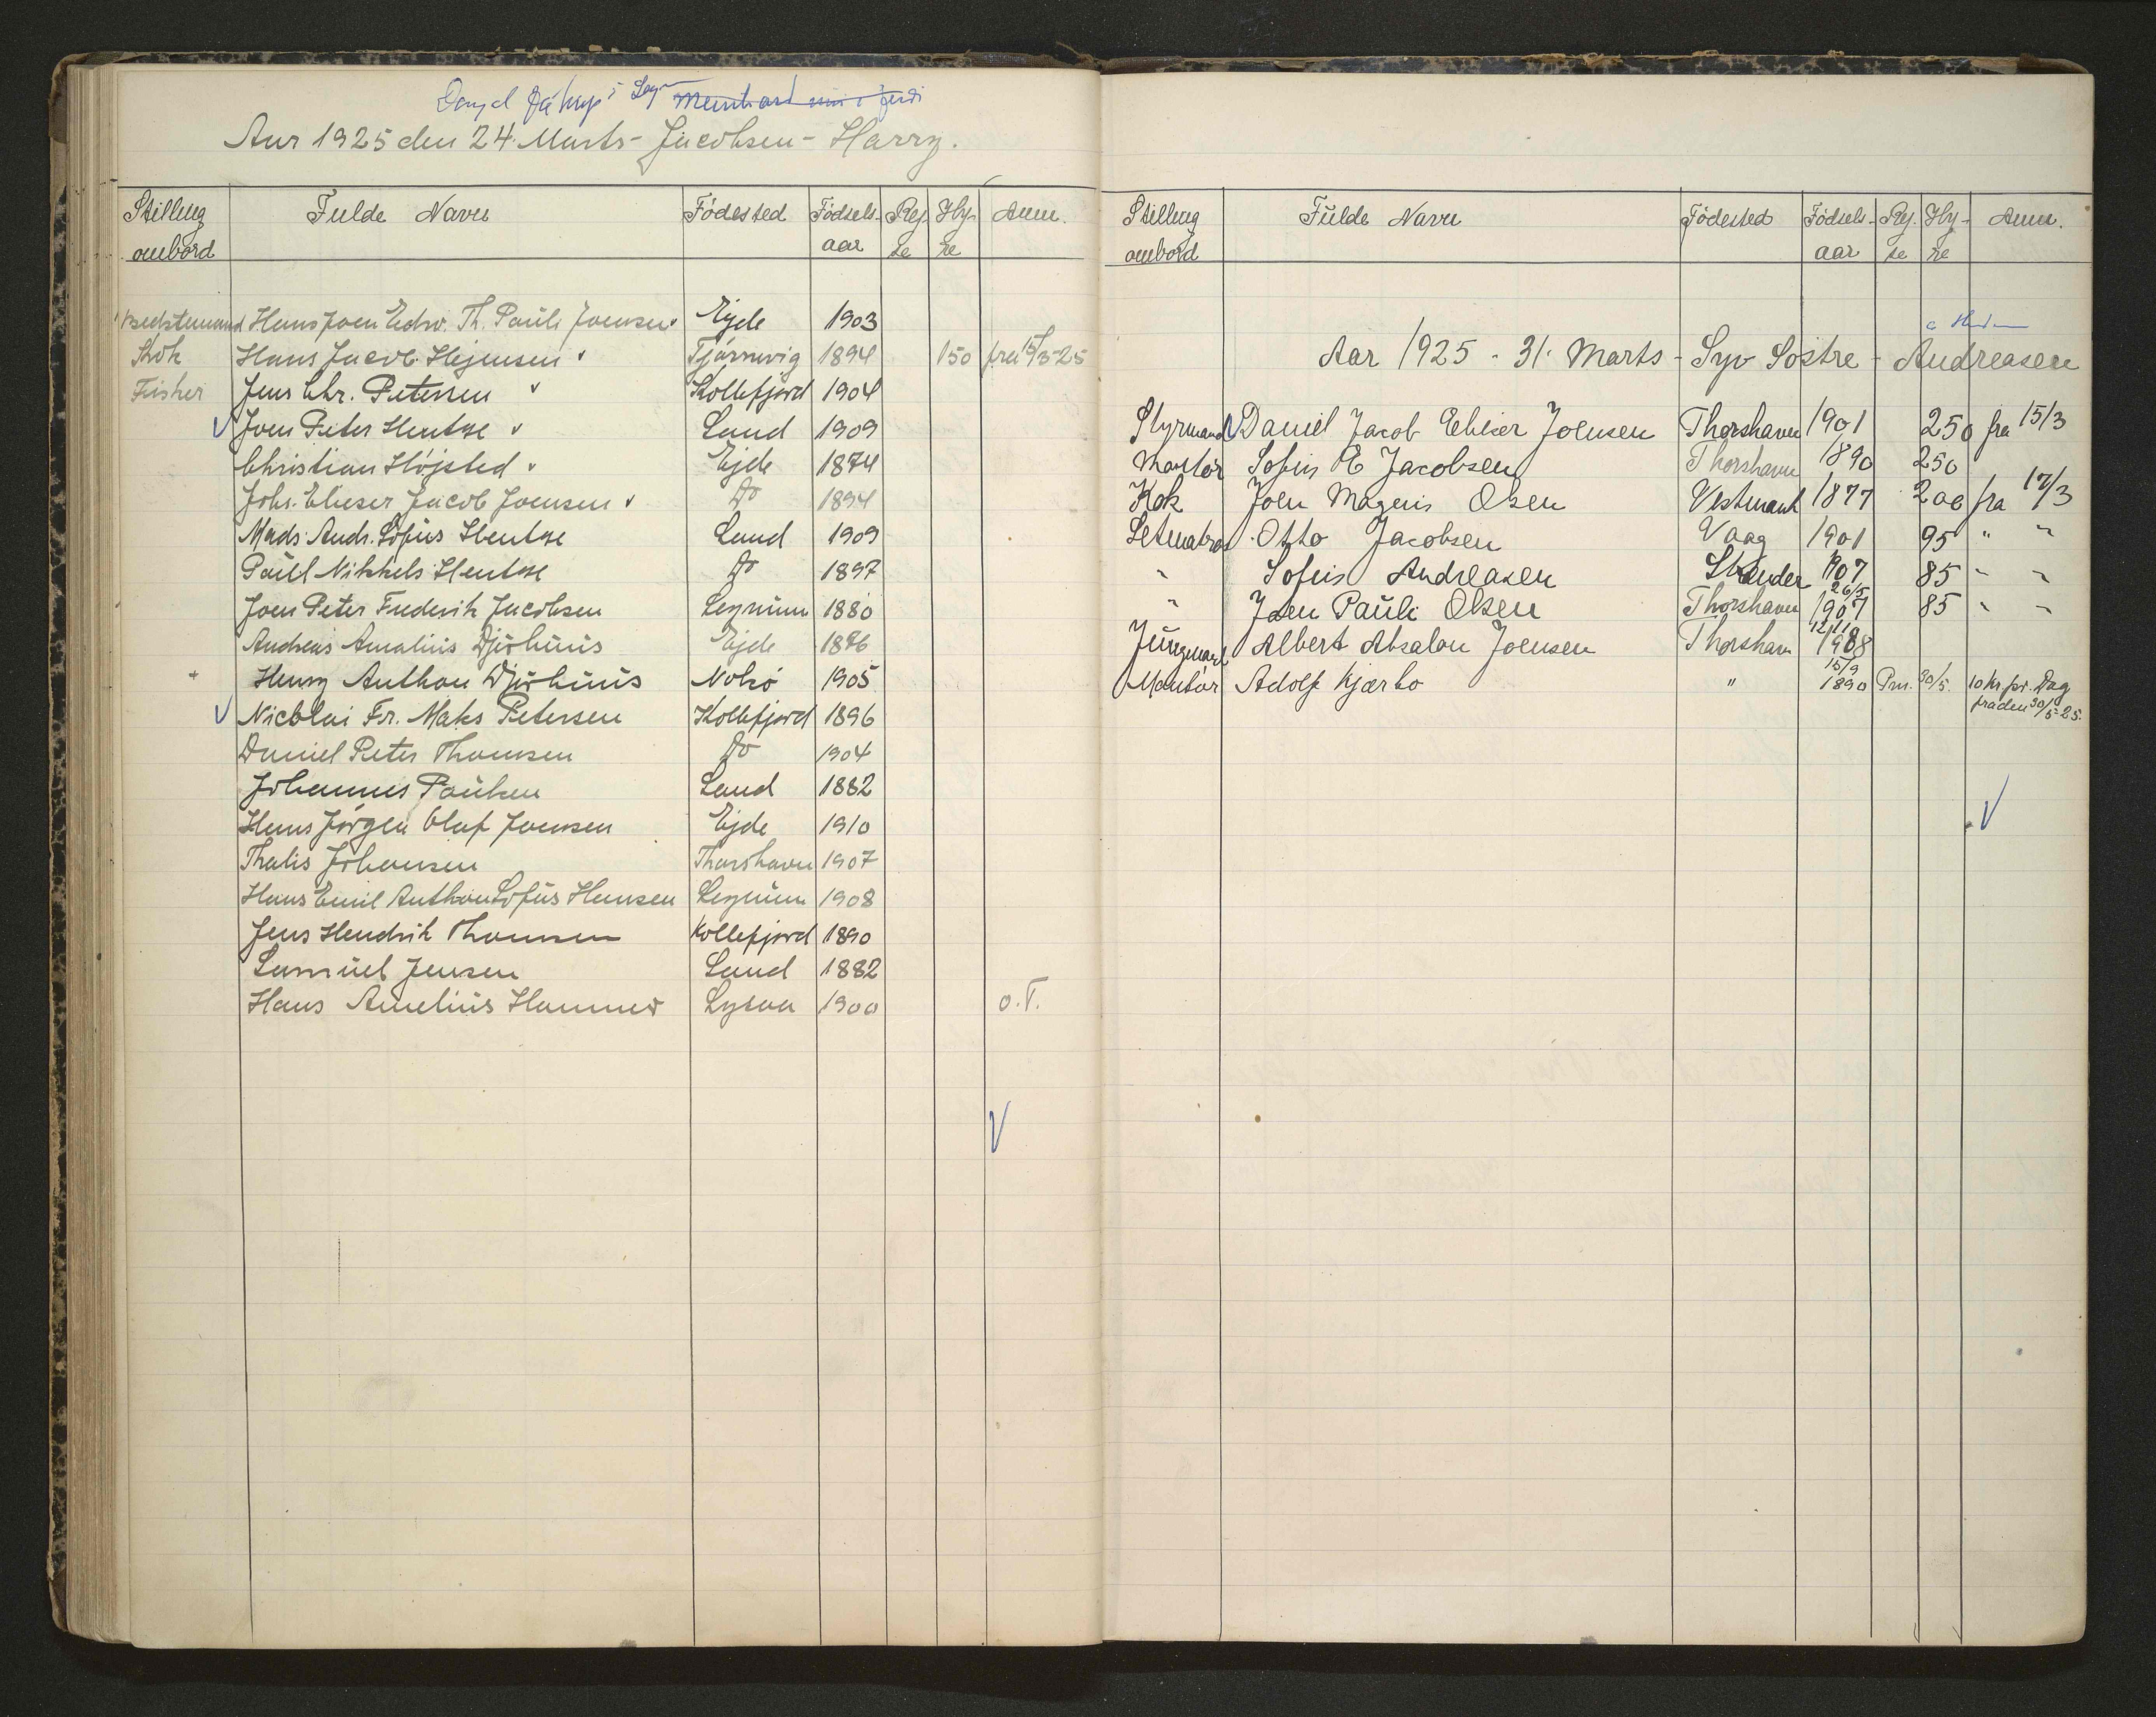 Aar 1925 den 24. Marts - Jacobsen - Harry.
Stilling ombord Fulde Navn Födested Födsels-aar Rej-se Hy-re Anm.
Bedstemand Hans Joen Edw. Th. Pauli Joensen Ejde 1903
Kok Hans Jacob Hejnesen Tjörnevig 1894 150 fra 15/3-25
Fisker Jens Chr. Petersen Kollefjord 1904
Joen Peter Hentze Sand 1909
Christian Höjsted Ejde 1874
Johs. Elieser Jacob Joensen Do 1894
Mads Andr. Sofus Hentze Sand 1909
Paul Nikkels Hentze Do 1897
Joen Peter Frederik Jacobsen Legnum 1880
Andreas Amalius Djurhuus Ejde 1876
Henry Anthon Djurhuus Nolsö 1905
Nicolai Fr. Maks Petersen Kollefjord 1896
Daniel Peter Thomsen Do 1904
Johannes Paulsen Sand 1882
Hans Jörgen Olaf Joensen Ejde 1910
Thalis Johansen Thorshavn 1907
Hans Emil Anthon Sofus Hansen Legnum 1908
Jens Hendrik Thomsen Kollefjord 1890
Samuel Jensen Sand 1882
Hans Amelius Hammer 1900 o.T.
Stilling ombord Fulde Navn Födested Födsels-aar Rej-se Hy-re Anm.
Aar 1925 - 31. Marts - Syv Söstre - Andreasen
Styrmand Daniel Jacob Elieser Joensen Thorshavn 1901 250 fra 15/3
Motor Sofus E Jacobsen Thorshavn 1890 250
Kok Joen Magnus Olsen Vestmanh 1877 200 fra 17/3
Letmatros Otto Jacobsen Vaag 1901 95 " "
" Sofus Andreasen Strender 1907 85 " "
" Joen Pauli Olsen Thorshavn 26/5 1907 85 " "
Jungmand Albert Absalon Joensen Thorshavn 12/10 1908
Motor Adolf Kjærbo " 15/9 1890 Prm. 30/5. 10 Kr pr. Dag
fra den 30/5-25.